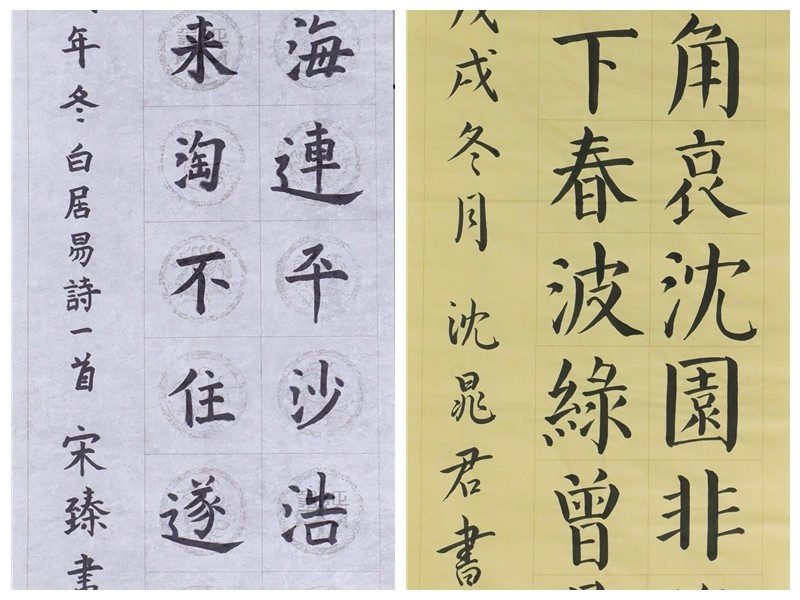 海連平沙浩
来淘不住遂
年冬白居易詩一首 宋臻書
角哀沈園非
下春波綠曾
戊戌冬月 沈晁君書